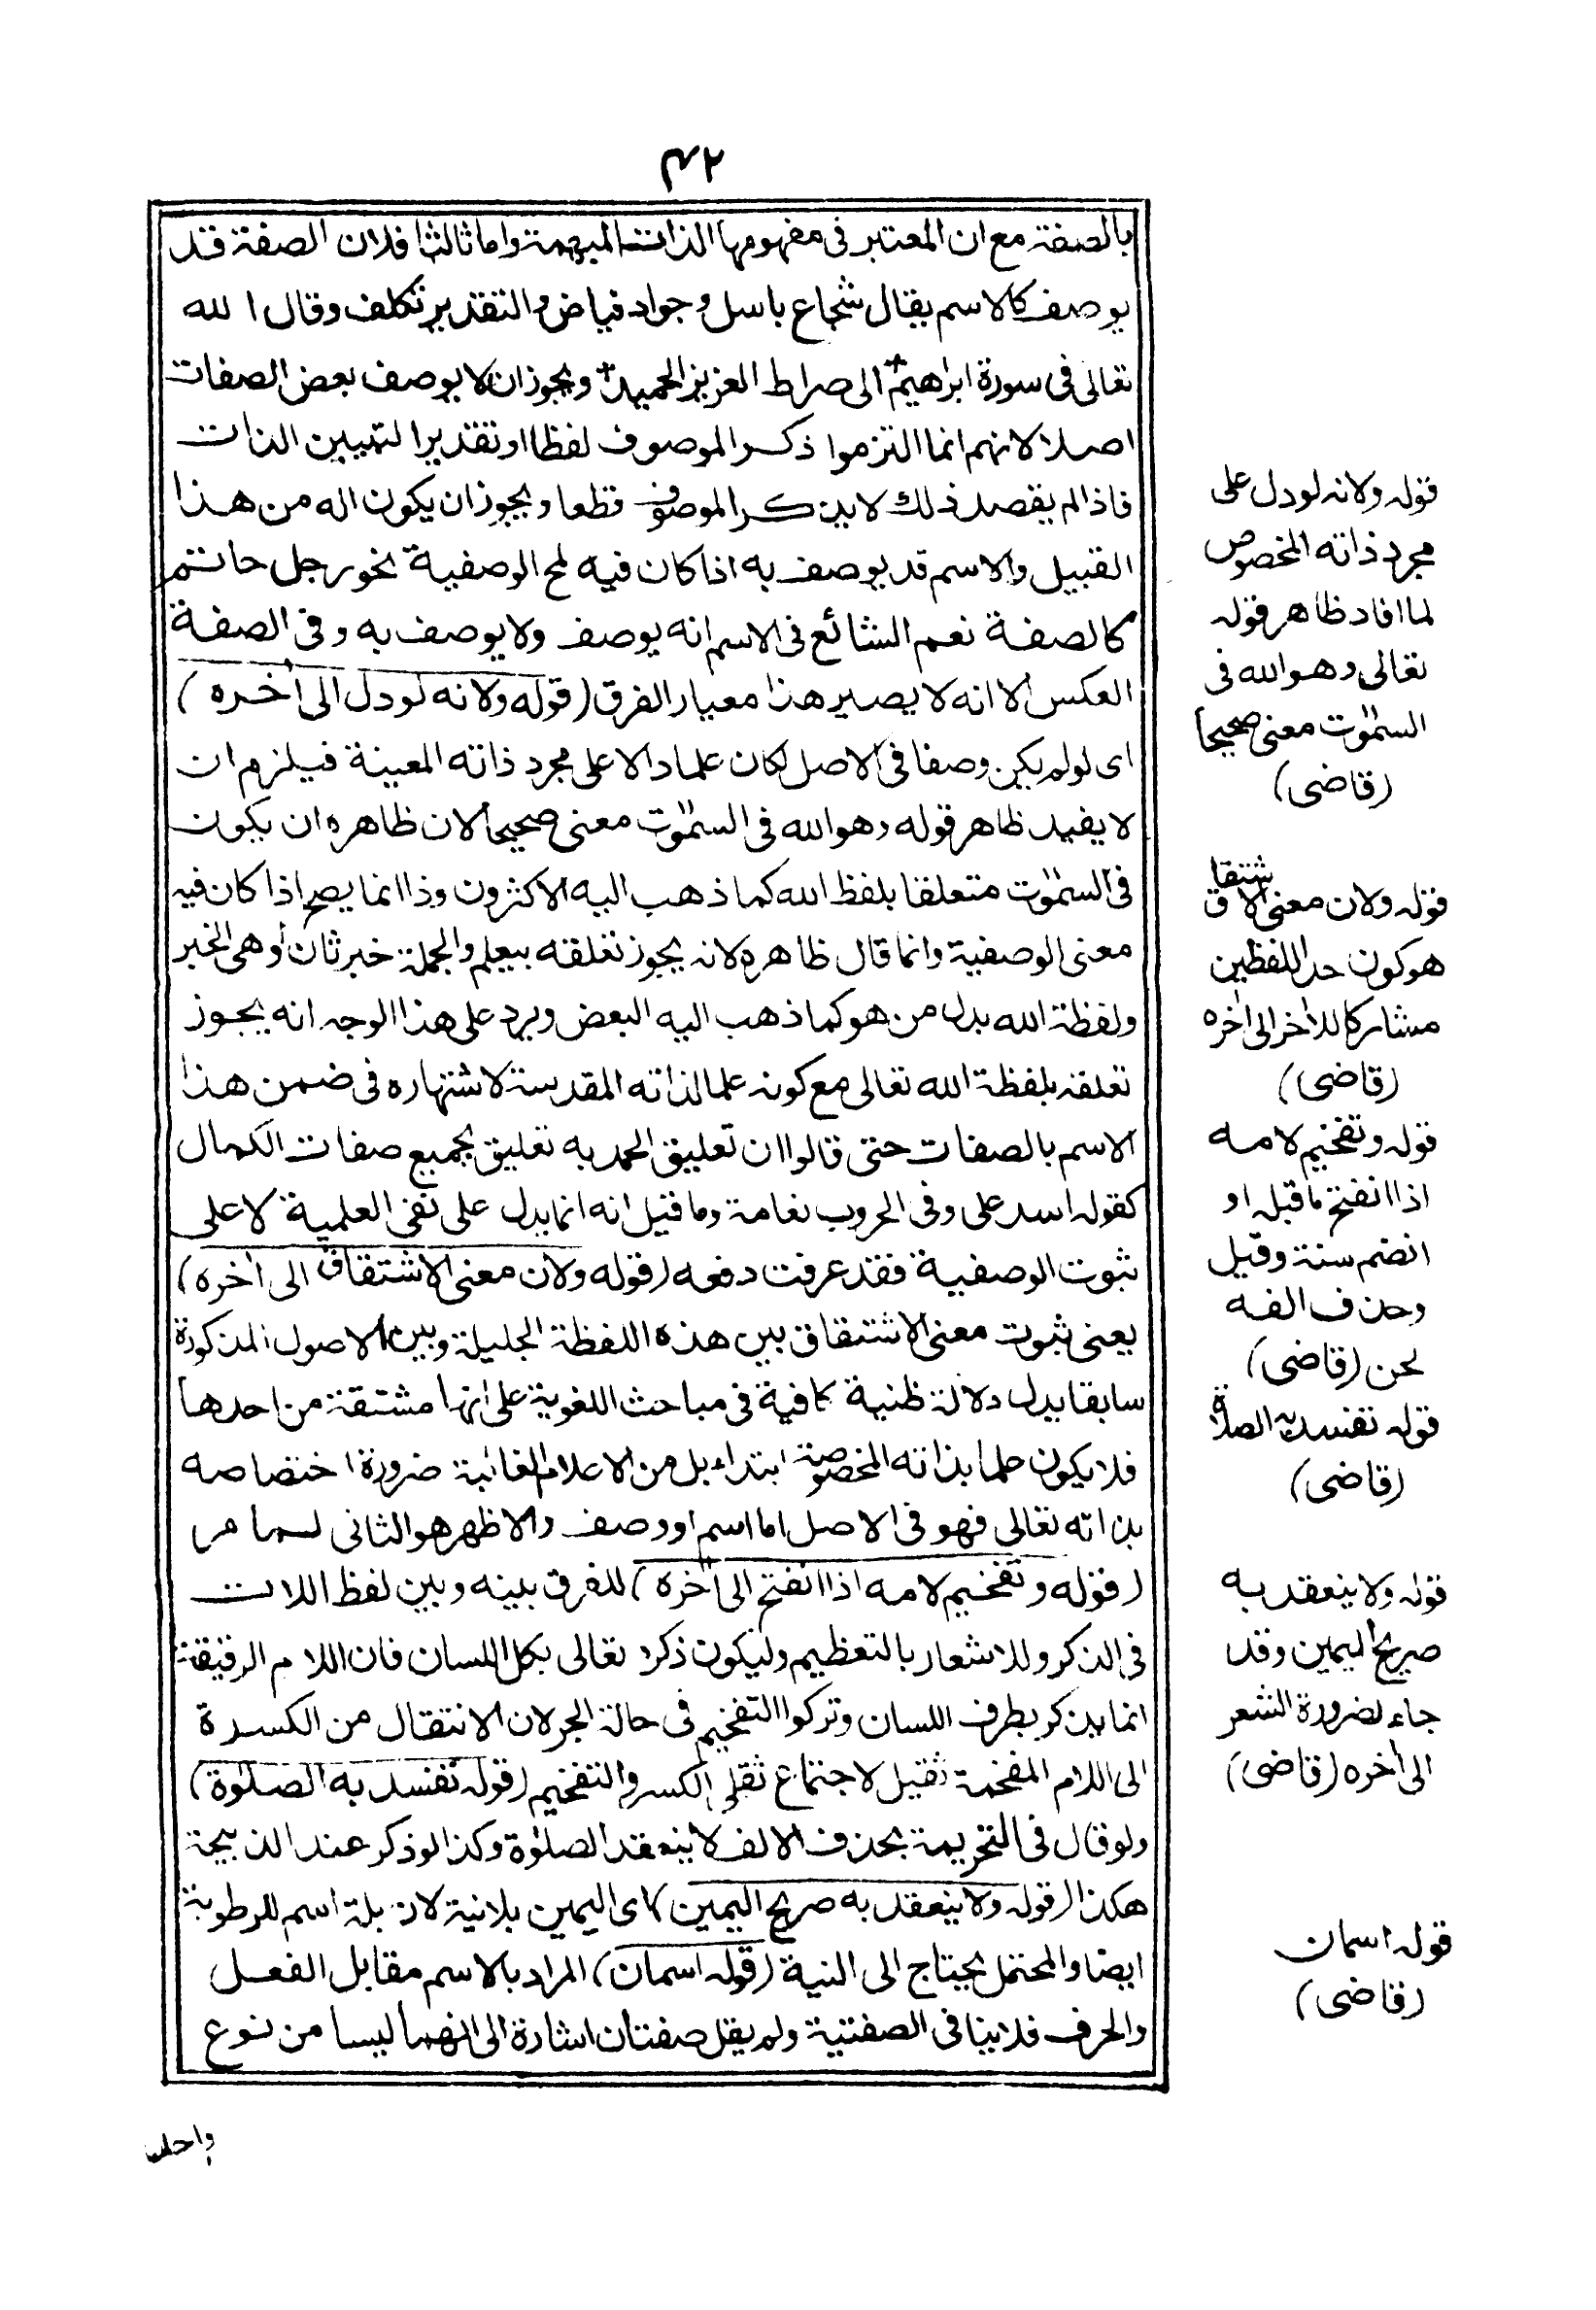 ٤٢
بالصفة مع ان المعتبر فى مفهومها الذات المبهمة واما ثالثا فلان الصفة قد
يوصف كالاسم يقال شجاع باسل وجواد فياض والتقدير تكلف وقال الله
تعالى فى سورة ابراهيم الى صراط العزيز الحميد ويجوز ان لا يوصف بعض الصفات
اصلا لانهم انما التزموا ذكر الموصوف لفظا او تقديرا لتبيين الذات
فاذا لم يقصد ذلك لا يذكر الموصوف قطعا ويجوز ان يكون اله من هذا
القبيل والاسم قد يوصف به اذا كان فيه لمح الوصفية نحو رجل حاتم
كالصفة نعم الشائع فى الاسم انه يوصف ولا يوصف به وفى الصفة
العكس الا انه لا يصير هذا معيار الفرق (قوله ولانه لو دل الى اخره)
اى لو لم يكن وصفا فى الاصل لكان علما دالا على مجرد ذاته المعينة فيلزم ان
لا يفيد ظاهر قوله وهو الله فى السمٰوٰت معنى صحيحا لان ظاهره ان يكون
فى السمٰوٰت متعلقا بلفظ الله كما ذهب اليه الاكثرون وذا انما يصح اذا كان فيه
معنى الوصفية وانما قال ظاهره لانه يجوز تعلقه بيعلم والجملة خبر ثان او هى الخبر
ولفظة الله بدل من هو كما ذهب اليه البعض ويرد على هذا الوجه انه يجوز
تعلقه بلفظة الله تعالى مع كونه علما لذاته المقدسة لاشتهاره فى ضمن هذا
الاسم بالصفات حتى قالوا ان تعليق الحمد به تعليق بجميع صفات الكمال
كقوله اسد على وفى الحروب نعامة وما قيل انه انما يدل على نفى العلمية لا على
ثبوت الوصفية فقد عرفت دفعه (قوله ولان معنى الاشتقاق الى اخره)
يعنى ثبوت معنى الاشتقاق بين هذه اللفظة الجليلة وبين الاصول المذكورة
سابقا يدل دلالة ظنية كافية فى مباحث اللغوية على انها مشتقة من احدها
فلا يكون علما بذاته المخصوصة ابتداء بل من الاعلام الغالبة ضرورة اختصاصه
بذاته تعالى فهو فى الاصل اما اسم او وصف والاظهر هو الثانى لما مر
(قوله وتفخيم لامه اذا انفتح الى اخره) للفرق بينه وبين لفظ اللات
فى الذكر وللاشعار بالتعظيم وليكون ذكره تعالى بكل اللسان فان اللام الرقيقة
انما يذكر بطرف اللسان وتركوا التفخيم فى حالة الجر لان الانتقال من الكسرة
الى اللام المفخمة ثقيل لاجتماع ثقلى الكسر والتفخيم (قوله تفسد به الصلوٰة)
ولو قال فى التحريمة بحذف الالف لا ينعقد الصلوٰة وكذا لو ذكر عند الذبيحة
هكذا (قوله ولا ينعقد به صريح اليمين) اى اليمين بلا نية لان بلة اسم للرطوبة
ايضا والمحتمل يحتاج الى النية (قوله اسمان) المراد بالاسم مقابل الفعل
والحرف فلا ينافى الصفتية ولم يقل صفتان اشارة الى انهما ليسا من نوع
واحد
قوله ولانه لو دل على
مجرد ذاته المخصوص
لما افاد ظاهر قوله
تعالى وهو الله فى
السمٰوٰت معنى صحيحا
(قاضى)
قوله ولان معنى الاشتقاق
هو كون احد اللفظين
مشاركا للاخر الى اخره
(قاضى)
قوله وتفخيم لامه
اذا انفتح ما قبله او
انضم سنة وقيل
وحذف الفه
لحن (قاضى)
قوله تفسد به الصلاة
(قاضى)
قوله ولا ينعقد به
صريح اليمين وقد
جاء لضرورة الشعر
الى اخره (قاضى)
قوله اسمان
(قاضى)